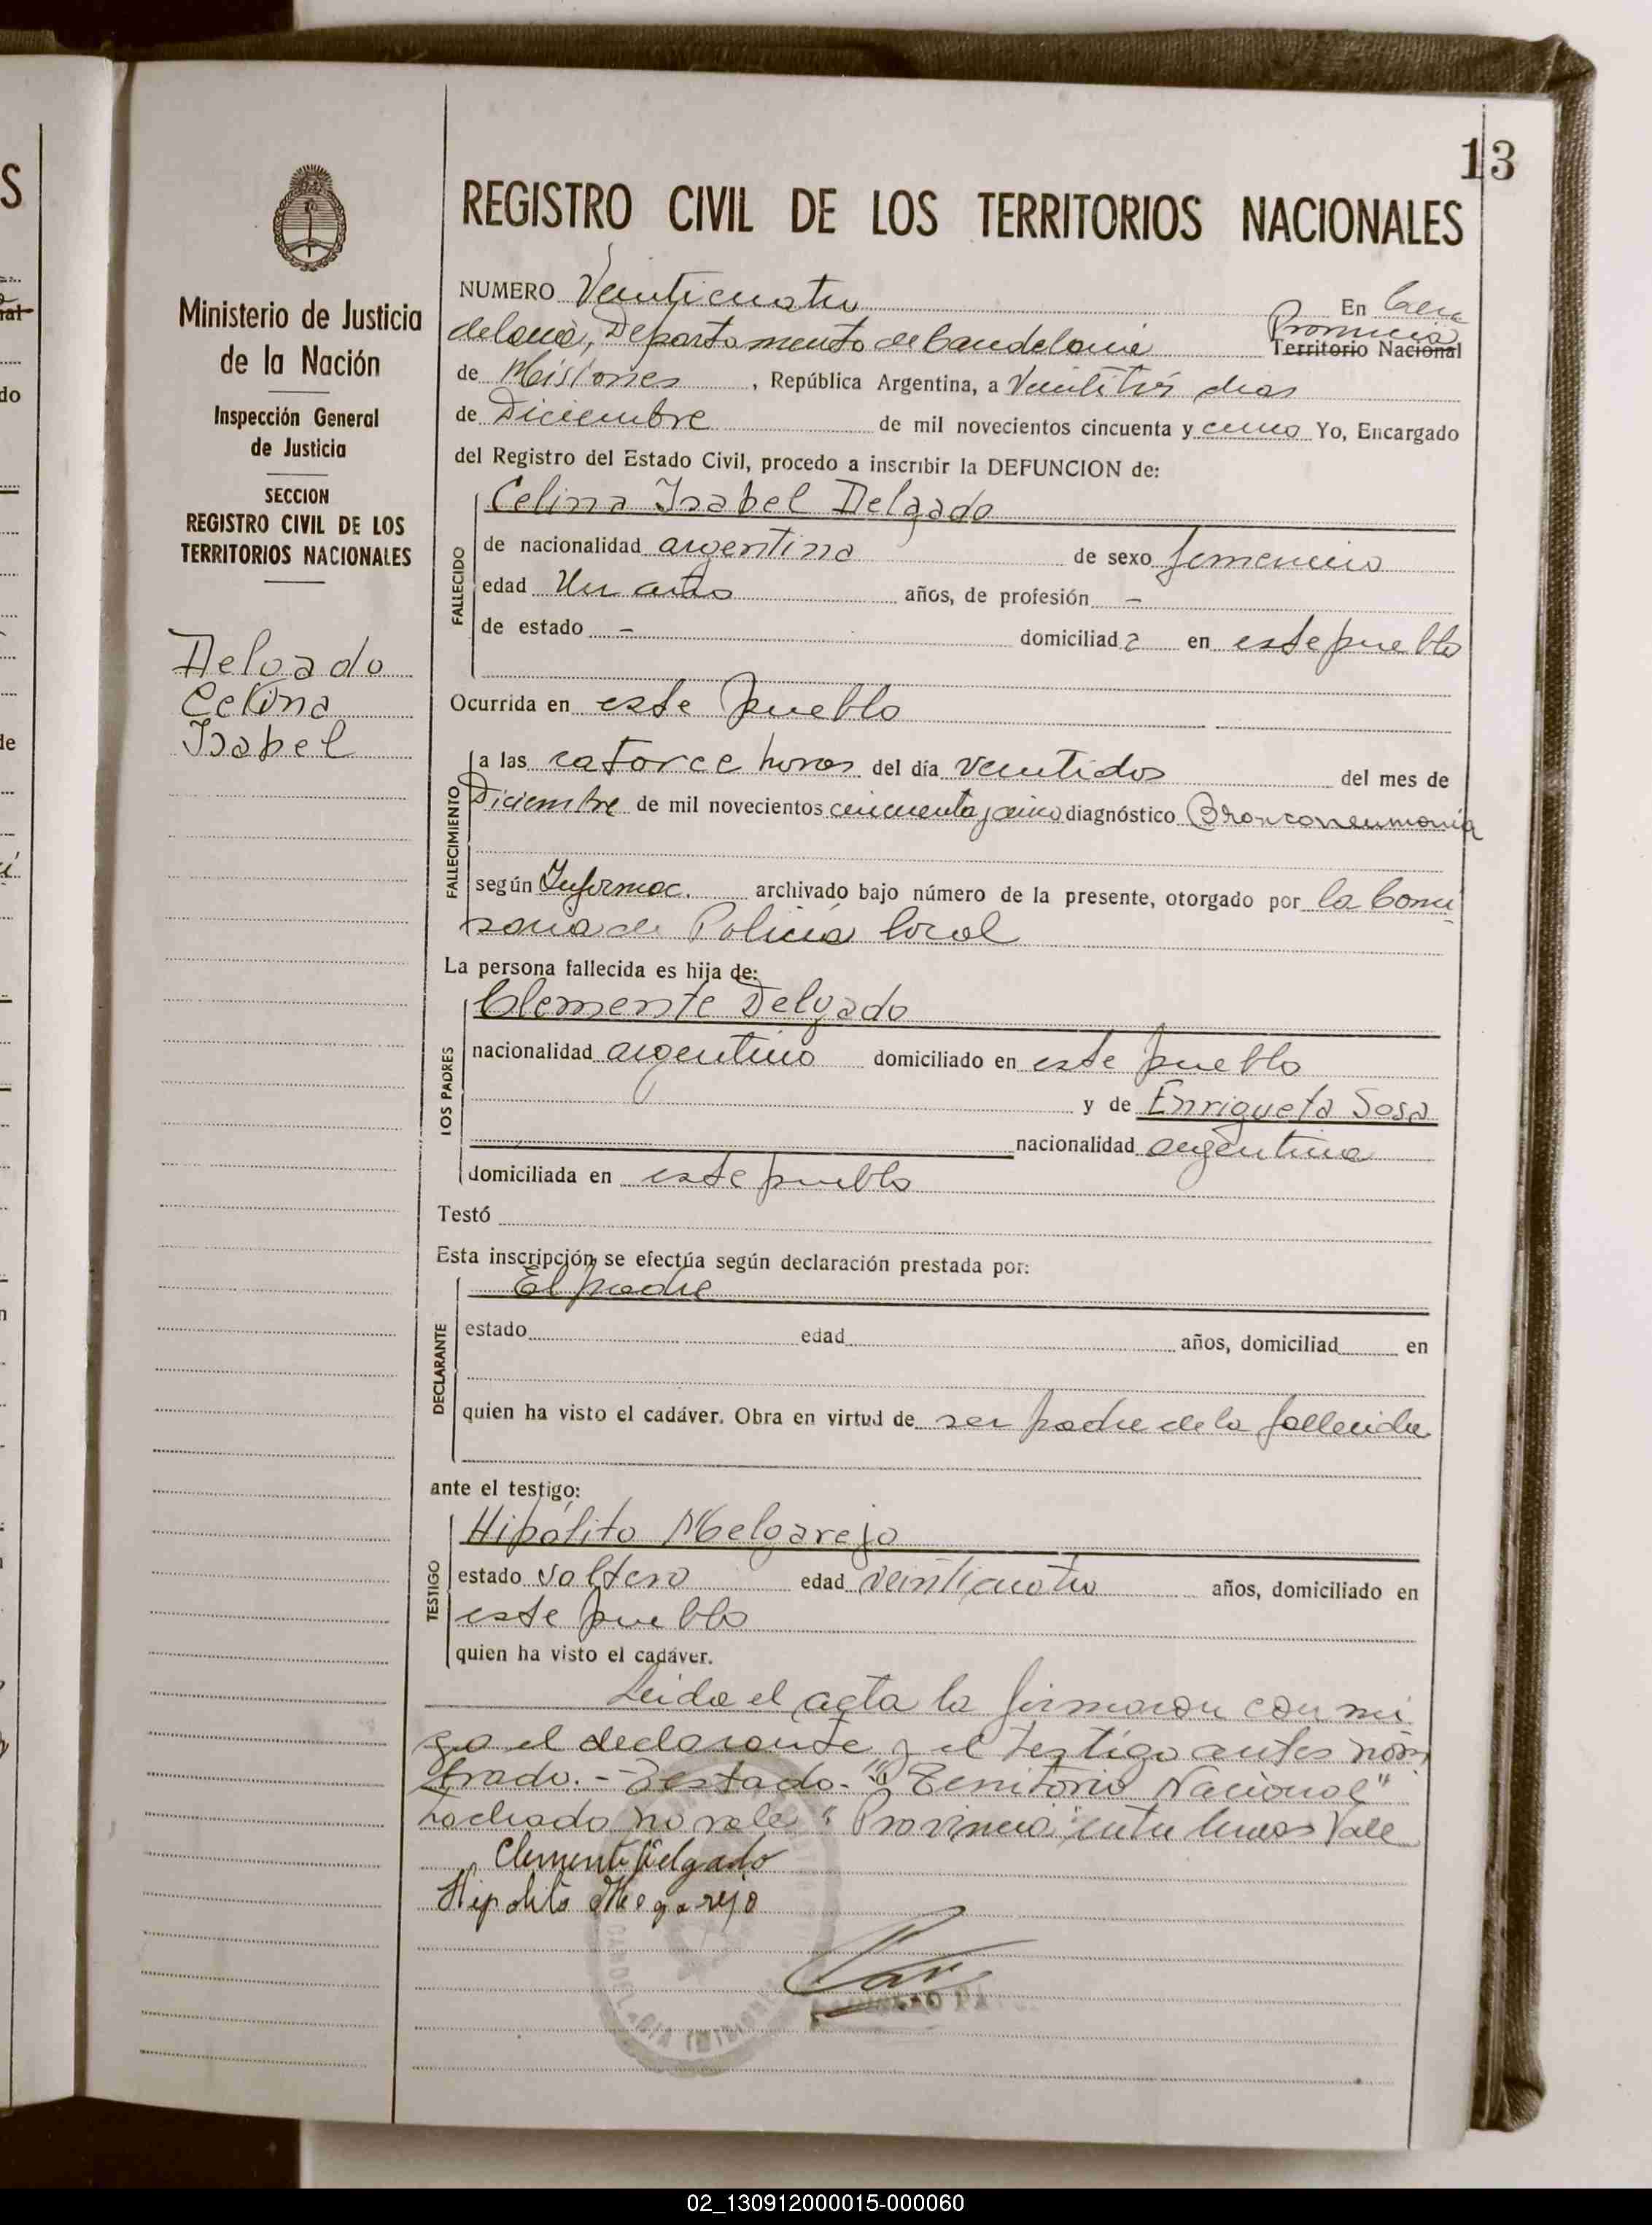 13
REGISTRO CIVIL DE LOS TERRITORIOS NACIONALES
Ministerio de Justicia
de la Nación
Inspección General
de Justicia
SECCION
REGISTRO CIVIL DE LOS
TERRITORIOS NACIONALES
Delgado
Celina
Isabel
NUMERO Veinticuatro En Can
delaria, Departamento de Candelaria Provincia Territorio Nacional
de Misiones, República Argentina, a Veintitrés dias
de Diciembre de mil novecientos cincuenta y cinco Yo, Encargado
del Registro del Estado Civil, procedo a inscribir la DEFUNCION de:
FALLECIDO
Celina Isabel Delgado
de nacionalidad argentina de sexo femenino
edad Un año años, de profesión -
de estado - domiciliad a en este pueblo
Ocurrida en este pueblo
FALLECIMIENTO
a las catorce horas del día veintidos del mes de
Diciembre de mil novecientos cincuenta y cinco diagnóstico Bronconeumonia
según Informac. archivado bajo número de la presente, otorgado por la Comi
saria de Policía local
La persona fallecida es hija de:
LOS PADRES
Clemente Delgado
nacionalidad argentino domiciliado en este pueblo
y de Enriqueta Sosa
nacionalidad argentina
domiciliada en este pueblo
Testó
Esta inscripción se efectúa según declaración prestada por:
DECLARANTE
El padre
estado edad años, domiciliad en
quien ha visto el cadáver. Obra en virtud de ser padre de la fallecida
ante el testigo:
TESTIGO
Hipólito Melgarejo
estado soltero edad veinticuatro años, domiciliado en
este pueblo
quien ha visto el cadáver.
Leida el acta la firmaron con mi
go el declarante y el testigo antes nom
brado.- Testado- "Territorio Nacional"
tachado no vale "Provincia" entre lineas Vale
Clemente Delgado
Hipolito Melgarejo
02_130912000015-000060